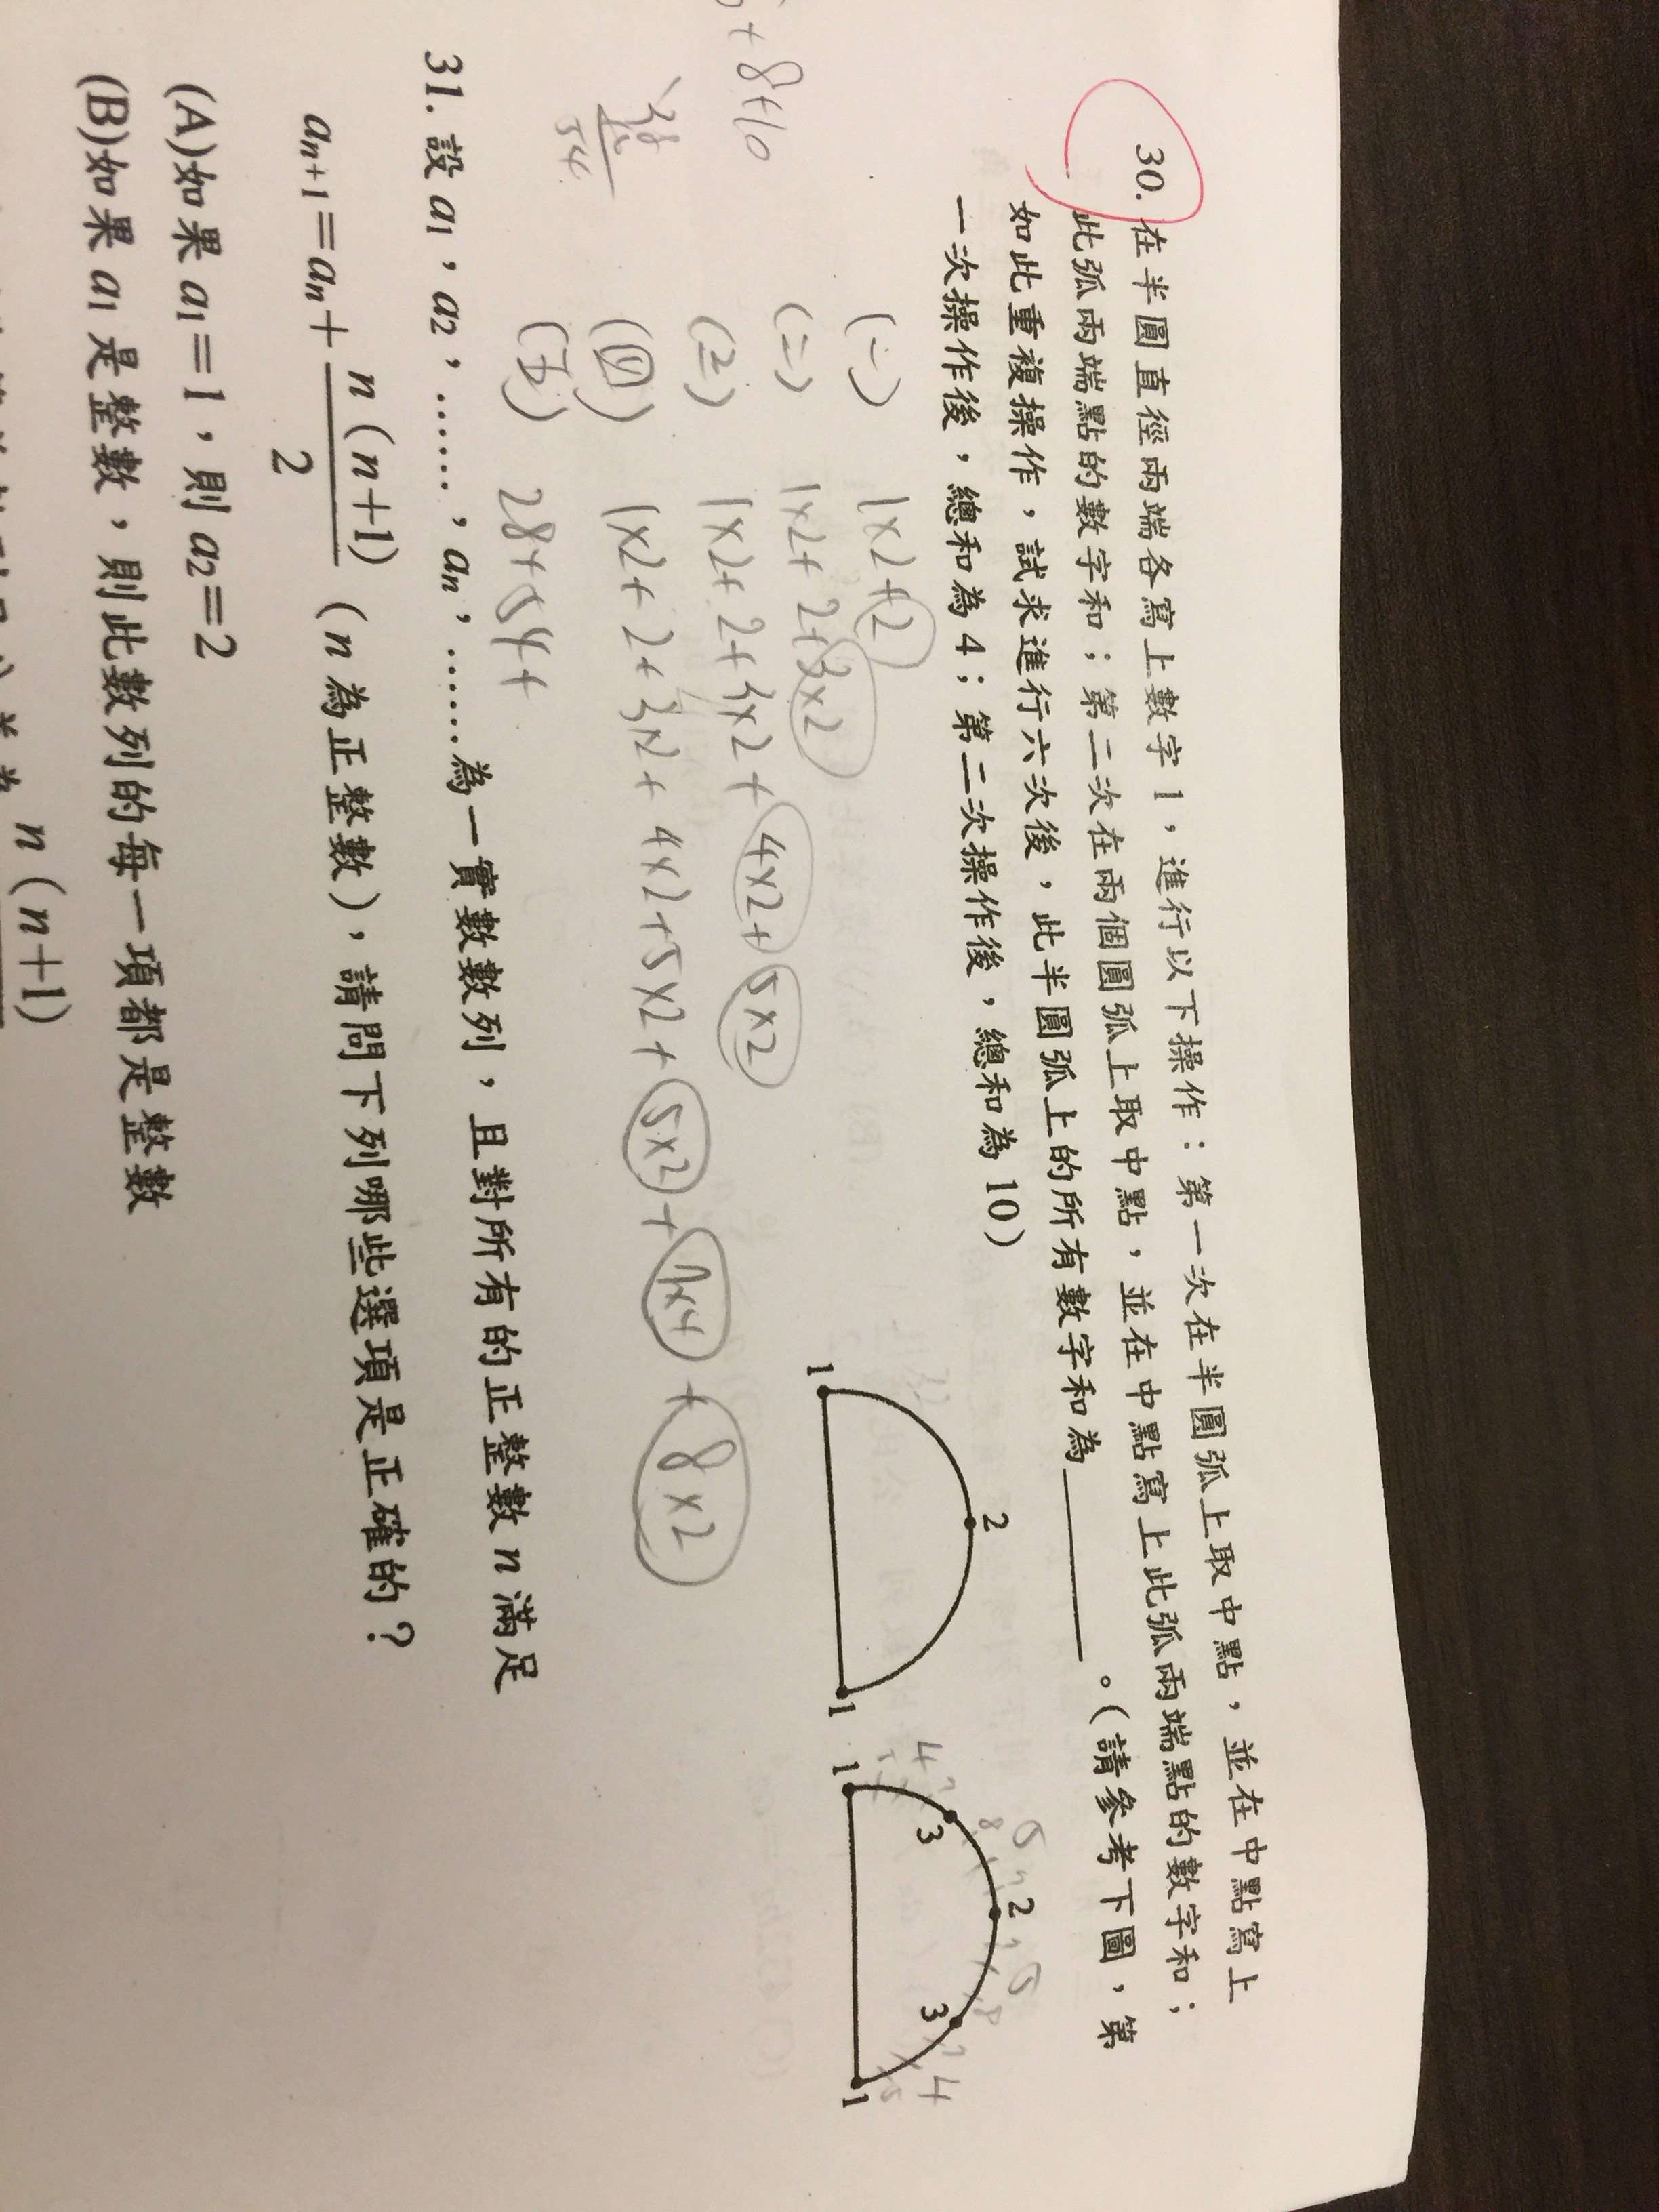 30. 在半圓直徑兩端各寫上數字 1，進行以下操作：第一次在半圓弧上取中點，並在中點寫上
此弧兩端點的數字和；第二次在兩個圓弧上取中點，並在中點寫上此弧兩端點的數字和；
如此重複操作，試求進行六次後，此半圓弧上的所有數字和為＿＿＿＿。（請參考下圖，第
一次操作後，總和為 4；第二次操作後，總和為 10）
1 2 1
1 3 2 3 1
(一) 1×2+2
(二) 1×2+2+3×2
(三) 1×2+2+3×2+4×2+5×2
(四) 1×2+2+3×2+4×2+5×2+5×2+7×4+8×2
(五) 28+54+
+8+10
54
31. 設 a1，a2，……，an，……為一實數數列，且對所有的正整數 n 滿足
an+1＝an＋n（n＋1）/2（n 為正整數），請問下列哪些選項是正確的？
(A)如果 a1＝1，則 a2＝2
(B)如果 a1 是整數，則此數列的每一項都是整數
n（n＋1）